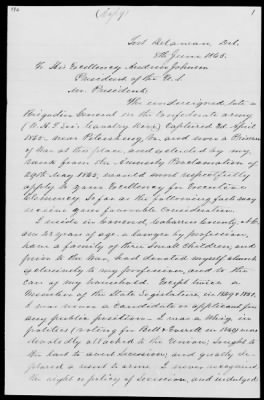 (Copy) 1
Fort Delaware, Del.
8th June 1865.
To His Excellency Andrew Johnson
President of the U.S.
Mr. President:
The undersigned late a
Brigadier General in the Confederate army
(W.H.F. Lee's Cavalry Divis.) captured 3d April
1865, near Petersburg, Va. and now a Prisoner
of War at this place, and excluded by my
rank from the Amnesty Proclamation of
29th May 1865, would most respectfully
apply to your Excellency for Executive
Clemency. So far as the following facts may
receive your favorable consideration.
I reside in Concord, Cabarrus County, N.C.
am 38 years of age, a Lawyer by profession,
have a family of three small children, and
prior to the War, had devoted myself almost
exclusively to my profession, and to the
care of my household. Except twice a
Member of the State Legislature in 1850 & 1851,
I was never a Candidate or applicant for
any public position. I was a Whig in
politics (voting for Bell & Everett in 1860) was
devotedly attached to the Union; sought to
the last to avert Secession; and greatly de-
plored a resort to arms. I never recognized
the right or policy of Secession, and indulged